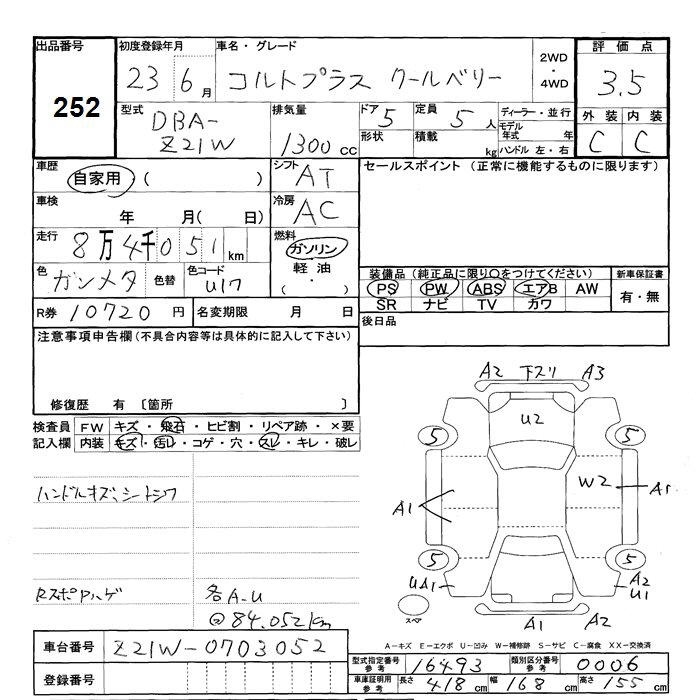 出品番号
252
初度登録年月
23 6月
車名・グレード
コルトプラス クールベリー
2WD
・
4WD
評価点
3.5
外装 内装
C C
型式
DBA-
Z21W
排気量
1300 cc
ドア 5
定員 5 人
形状
積載 kg
ディーラー・並行
モデル年式 年
ハンドル 左・右
車歴
自家用 ( )
シフト AT
車検
年 月( 日)
冷房 AC
走行
8万4千051 km
燃料
ガソリン
軽油
( ・ )
色
ガンメタ
色替
色コード
U17
R券 10720 円
名変期限 月 日
セールスポイント (正常に機能するものに限ります)
装備品 (純正品に限り○をつけてください)
PS PW ABS エアB AW
SR ナビ TV カワ
新車保証書
有・無
後日品
注意事項申告欄 (不具合内容等は具体的に記入して下さい)
修復歴 有 〔箇所 〕
検査員
記入欄
FW キズ・飛石・ヒビ割・リペア跡・×要
内装 キズ・汚レ・コゲ・穴・スレ・キレ・破レ
ハンドルキズ、シートシワ
RスポPハゲ
各A-U
@84.052km
A2 下スリ A3
U2
5 5
W2
A1 A1
5 5
UA1
A2
U1
スペア
A1 A2
A-キズ E-エクボ U-凹み W-補修跡 S-サビ C-腐食 XX-交換済
車台番号 Z21W-0703052
登録番号
型式指定番号 参考 16493
類別区分番号 参考 0006
車庫証明用 参考 長さ 418 cm 幅 168 cm 高さ 155 cm